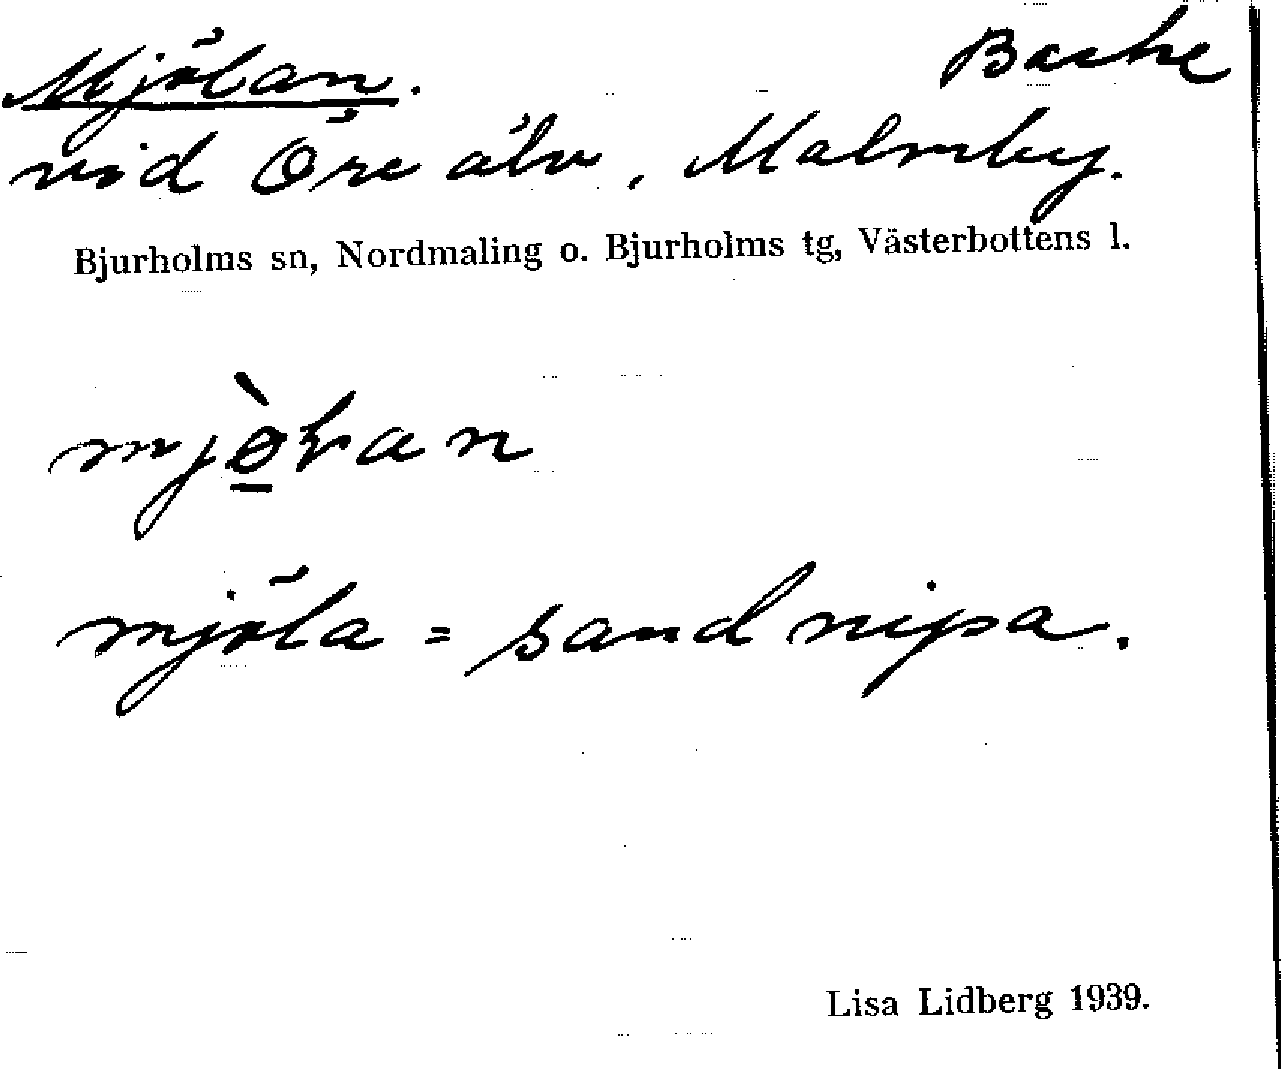 Mjölan. Backe
vid Öre älv, Malmby.
Bjurholms sn, Nordmaling o. Bjurholms tg, Västerbottens l.
mjöla = sandnipa.
Lisa Lidberg 1939.